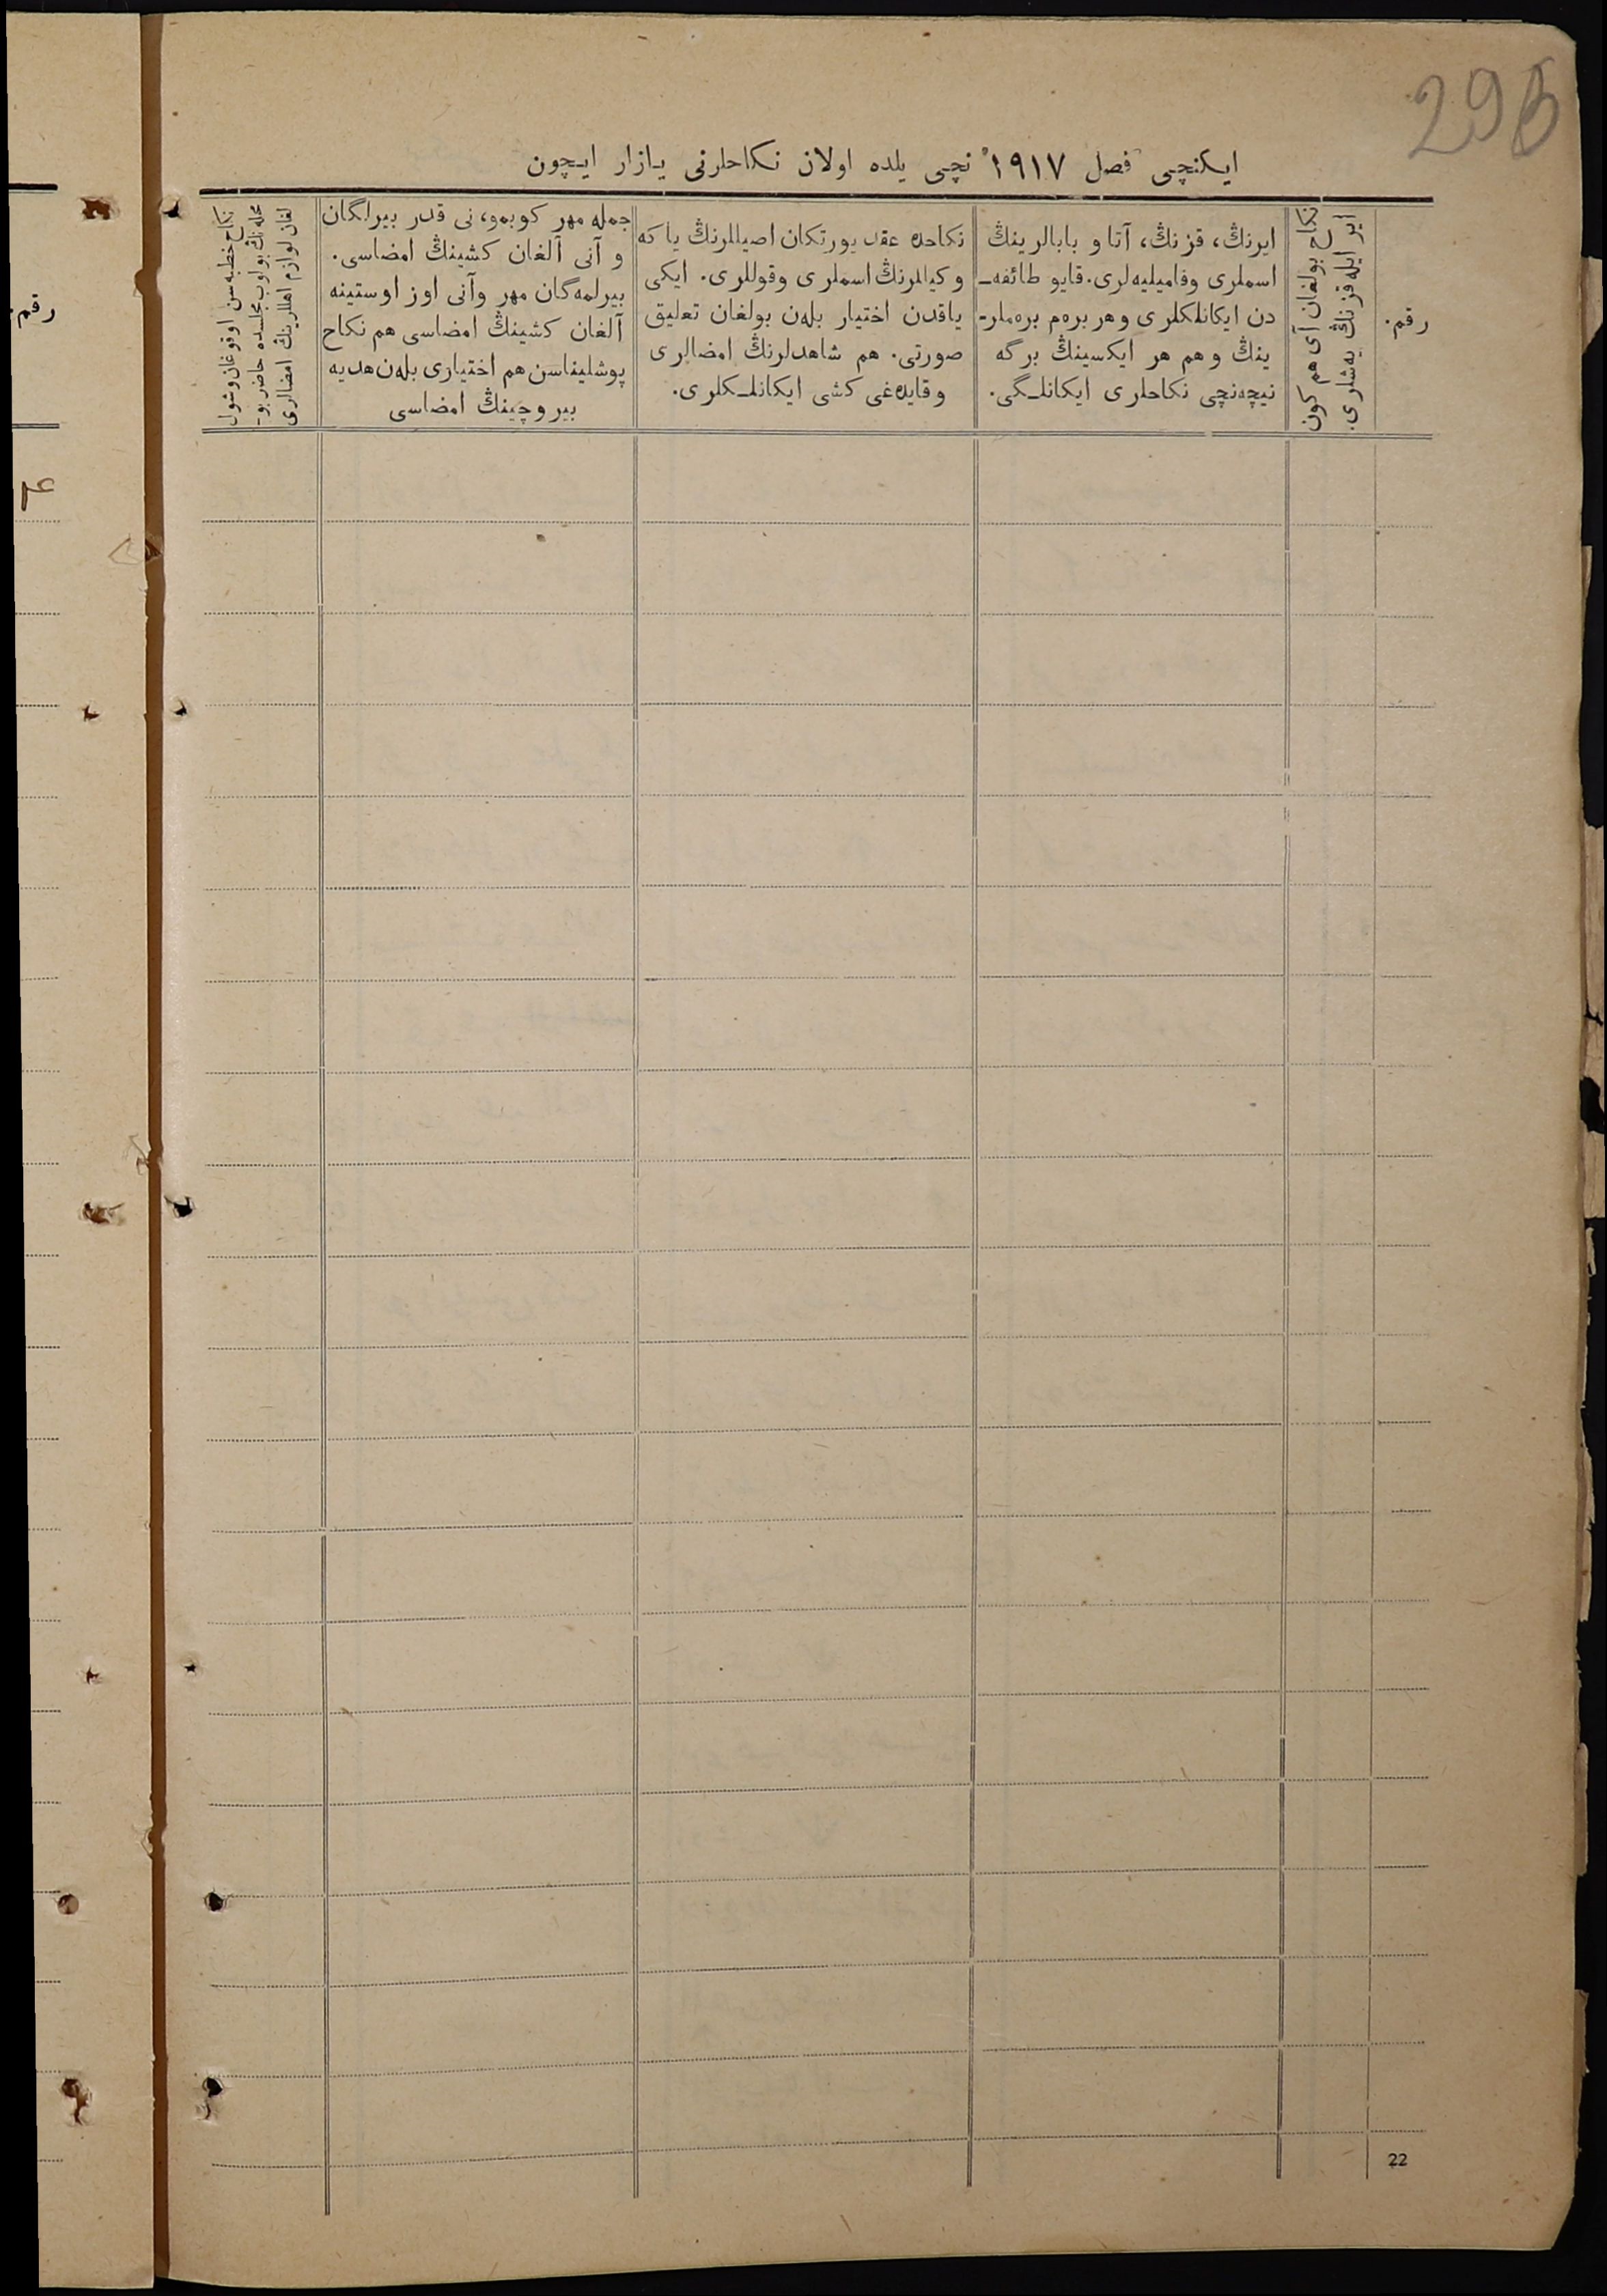 295
ایکنچی فصل ١٩١٧ نچی یلده اولان نکاحلرنی یازار ایچون
رقم.
نکاح بولغان آی هم کون
ایر ایله قزنڭ یه‌شلری.
ایرنڭ، قزنڭ، آتا و بابالرینڭ
اسملری وفامیلیه‌لری. قایو طائفه‌ـ
دن ایکانلکلری و هر بره‌م بره‌ملرـ
ینڭ و هم هر ایکسینڭ برگه
نیچه‌نچی نکاحلری ایکانلـگی.
نکاحده عقد یورتکان اصیللرنڭ یا که
وکیللرنڭ اسملری وقوللری. ایکی
یاقدن اختیار بله‌ن بولغان تعلیق
صورتی. هم شاهدلرنڭ امضالری
وقایده‌غی کشی ایکانلـکلری.
جمله مهر کوبمو، نی قدر بیرلگان
و آنی آلغان کشینڭ امضاسی.
بیرلمه‌گان مهر وآنی اوز اوستینه
آلغان کشینڭ امضاسی هم نکاح
پوشلیناسن هم اختیاری بله‌ن هدیه
بیروچینڭ امضاسی
نکاح خطبه‌سن اوقوغان وشول
محله‌نڭ بولوب مجلسده حاضر بوـ
لغان لوازم اهللرینڭ امضالری
رقم.
22